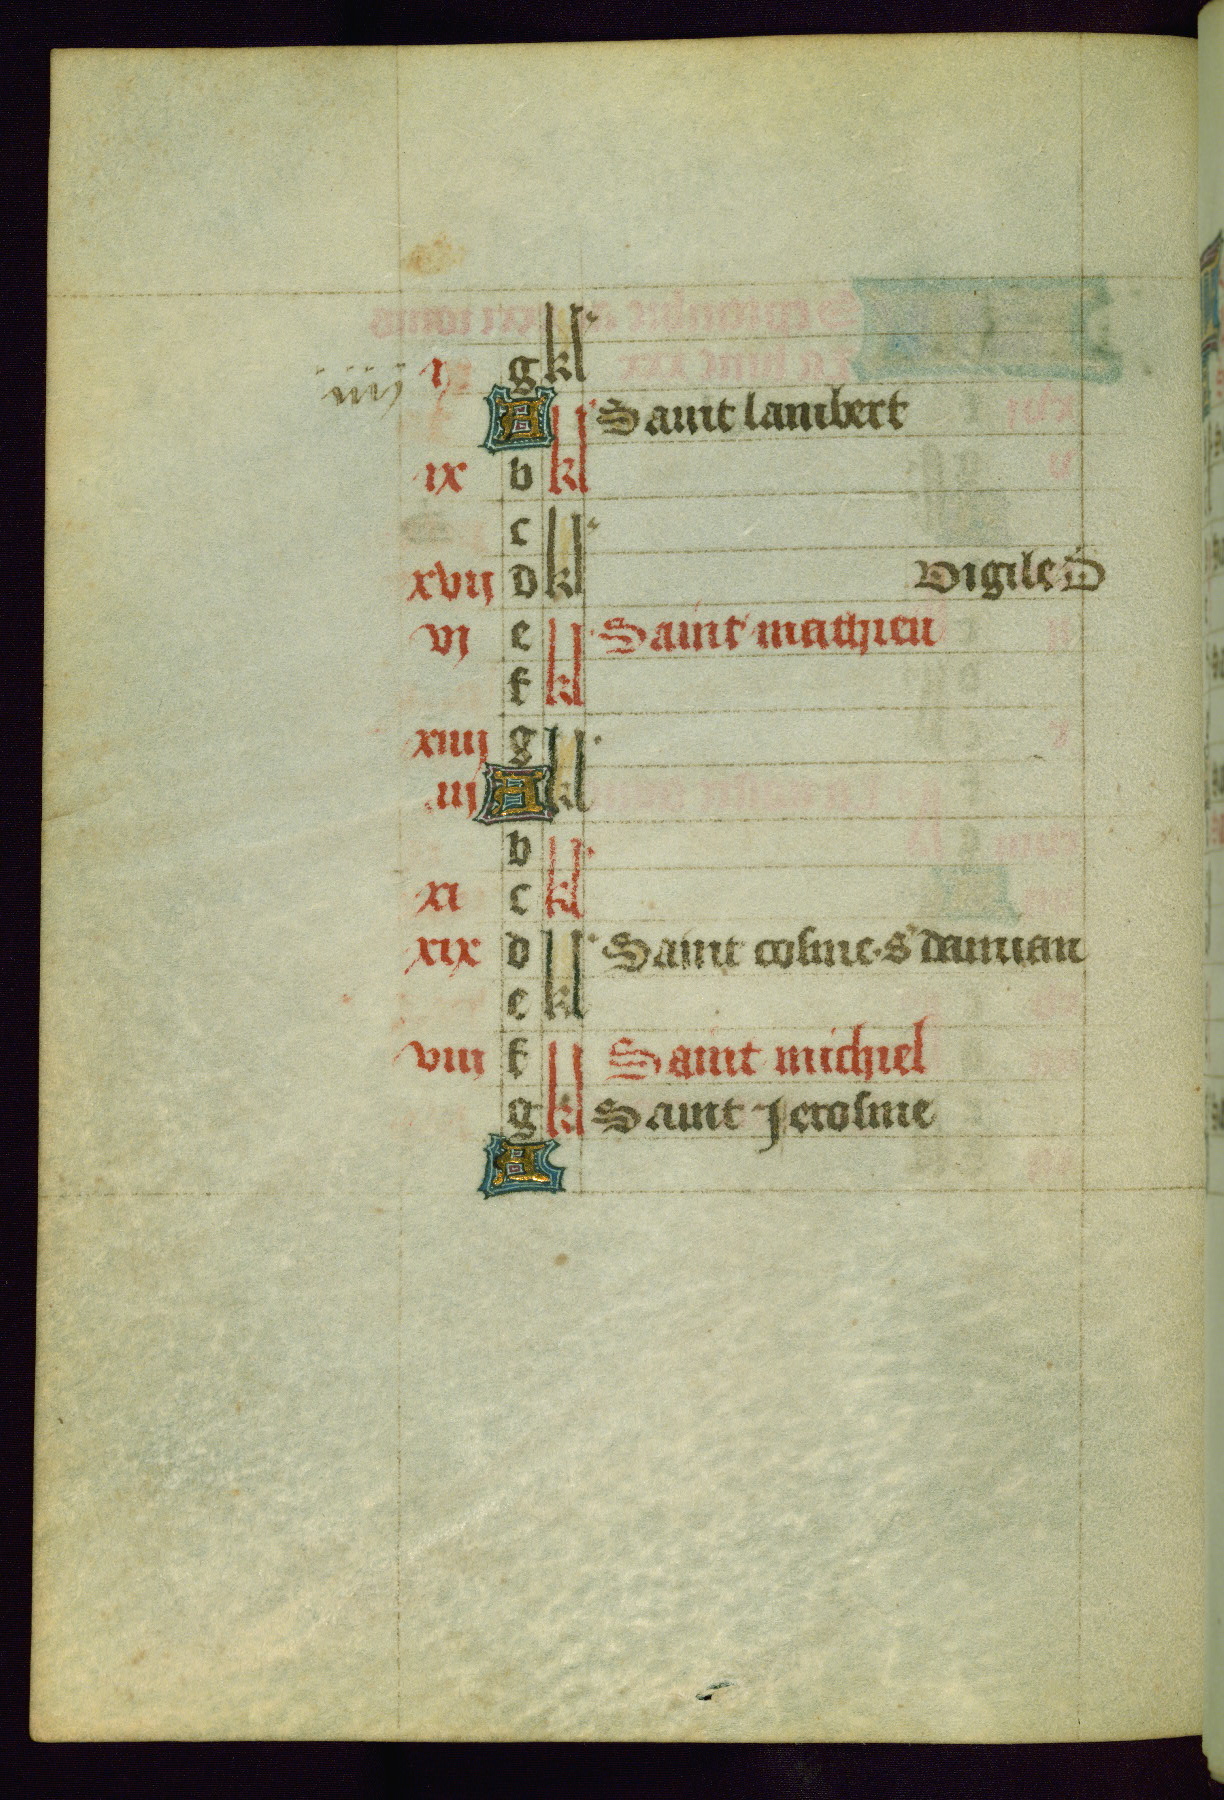 iiij j g kl
A Saint lambert
ix b kl
c
xvij d kl Vigile D
vj e Saint mathieu
f kl
xiiij g
iij A kl
b
xi c kl
xix d Saint cosme · s' damian
e kl
viij f Saint michiel
g kl Saint Jerosme
A